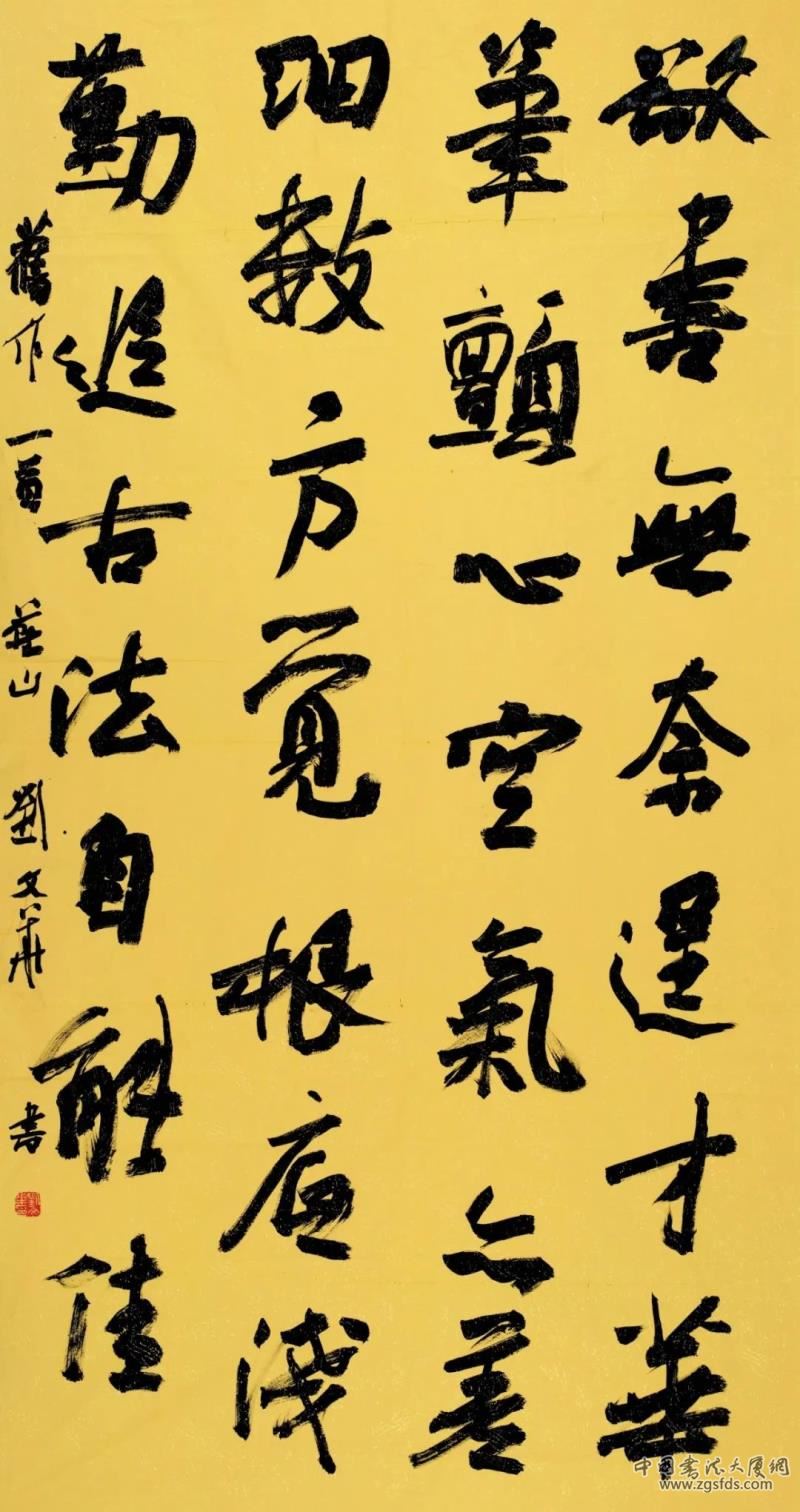 欲書無奈逞才華
筆顫心空氣亦差
細數方覺根底淺
勤追古法自能佳
舊作一首 燕山 劉文華 書
中国書法大厦網
www.zgsfds.com